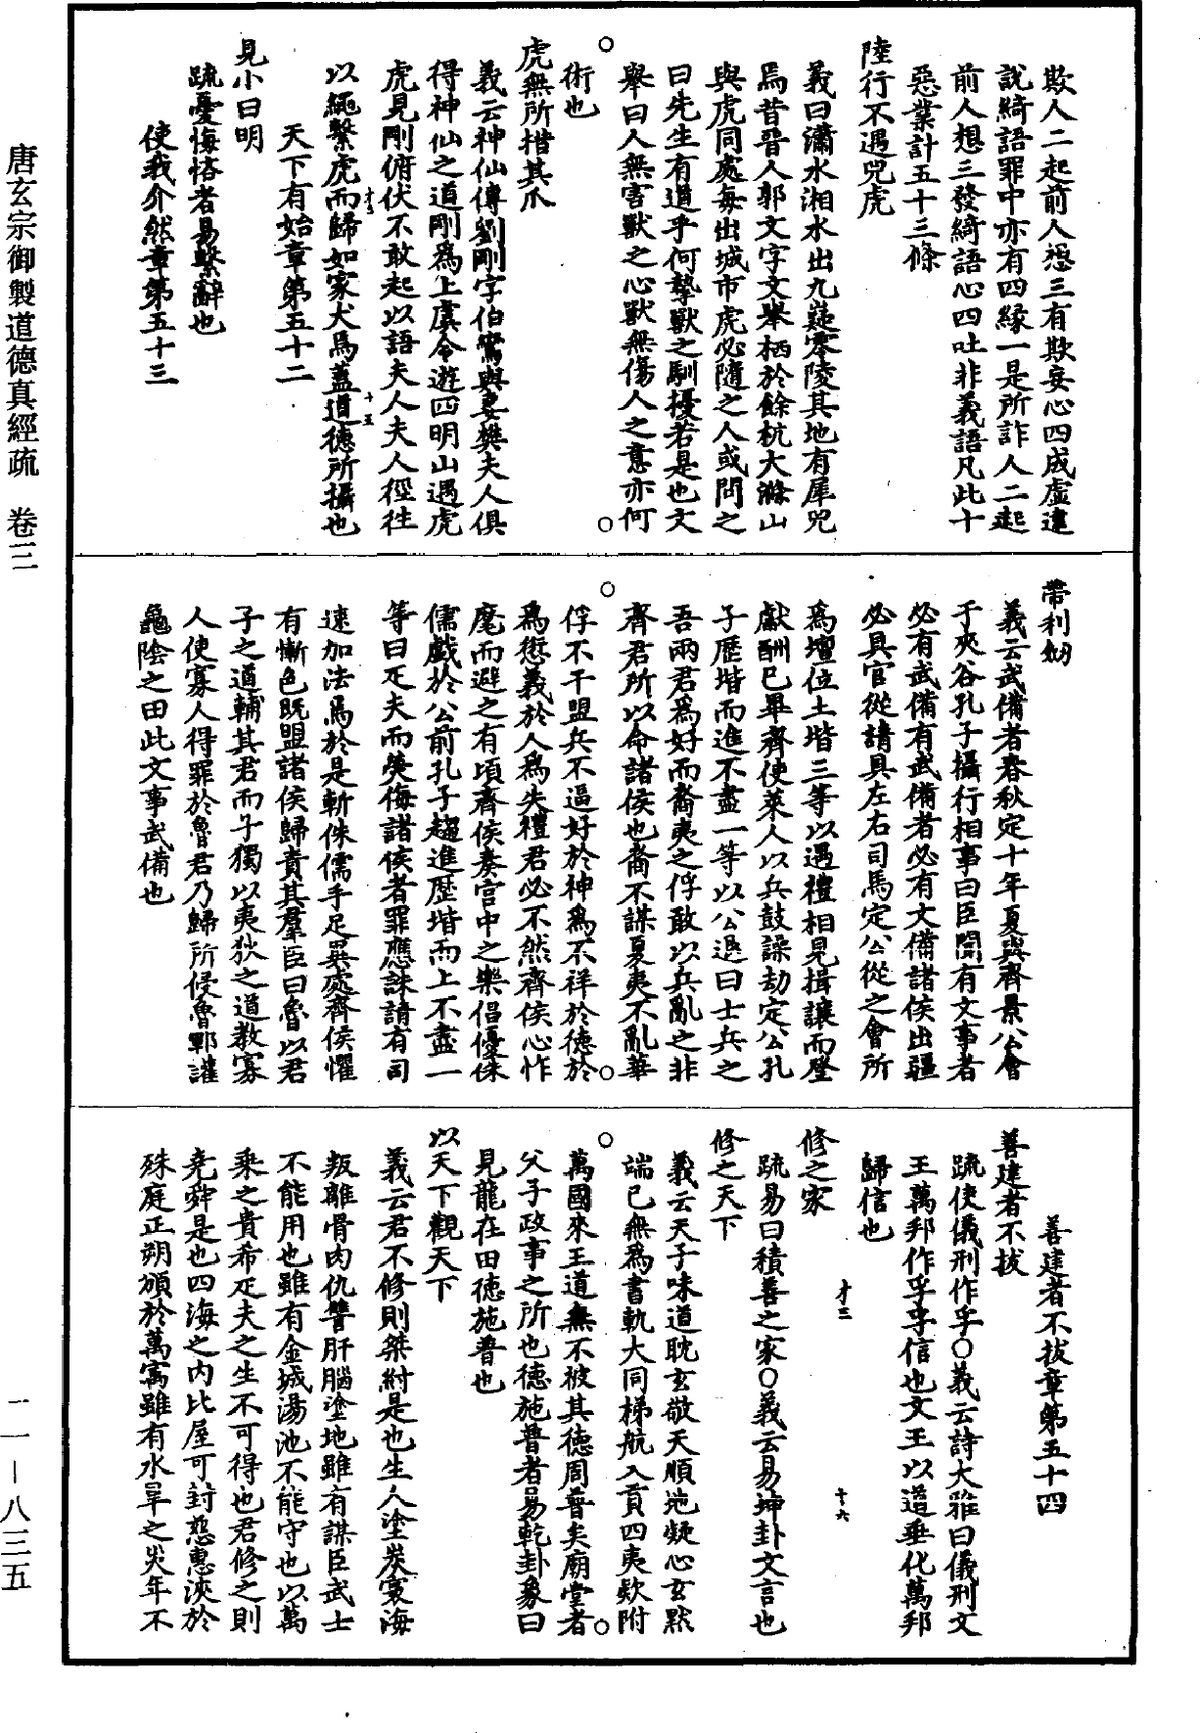 欺人二起前人想三有欺妄心四成虛違
說綺語罪中亦有四緣一是所詐人二起
前人想三發綺語心四吐非義語凡此十
惡業計五十三條
陸行不遇兕虎
義曰瀟水湘水出九疑零陵其地有犀兕
焉昔晉人郭文字文舉栖於餘杭大滌山
與虎同處每出城市虎必隨之人或問之
曰先生有道乎何摯獸之馴擾若是也文
舉曰人無害獸之心獸無傷人之意亦何
術也
虎無所措其爪
義云神仙傳劉剛字伯鸞與妻樊夫人俱
得神仙之道剛為上虞令遊四明山遇虎
虎見剛俯伏不敢起以語夫人夫人徑往
以繩繫虎而歸如家犬焉蓋道德所攝也
天下有始章第五十二
見小曰明
疏憂悔恡者易繫辭也
使我介然章第五十三
帶利劒
義云武備者春秋定十年夏與齊景公會
于夾谷孔子攝行相事曰臣聞有文事者
必有武備有武備者必有文備諸侯出疆
必具官從請具左右司馬定公從之會所
為壇位土堦三等以遇禮相見揖讓而登
獻酬已畢齊使萊人以兵鼓譟劫定公孔
子歷堦而進不盡一等以公退曰士兵之
吾兩君為好而裔夷之俘敢以兵亂之非
齊君所以命諸侯也裔不謀夏夷不亂華
俘不干盟兵不逼好於神為不祥於德於
為愆義於人為失禮君必不然齊侯心怍
麾而避之有頃齊侯奏宮中之樂倡優侏
儒戲於公前孔子趨進歷堦而上不盡一
等曰疋夫而熒侮諸侯者罪應誅請有司
速加法焉於是斬侏儒手足異處齊侯懼
有慚色既盟諸侯歸責其羣臣曰魯以君
子之道輔其君而子獨以夷狄之道教寡
人使寡人得罪於魯君乃歸所侵魯鄆讙
龜陰之田此文事武備也
善建者不拔章第五十四
善建者不拔
疏使儀刑作孚○義云詩大雅曰儀刑文
王萬邦作孚孚信也文王以道垂化萬邦
歸信也
修之家
疏易曰積善之家○義云易坤卦文言也
修之天下
義云天子味道耽玄敬天順地凝心玄默
端已無為書軌大同梯航入貢四夷欵附
萬國來王道無不被其德周普矣廟堂者
父子政事之所也德施普者易乾卦象曰
見龍在田德施普也
以天下觀天下
義云君不修則桀紂是也生人塗炭寰海
叛離骨肉仇讐肝腦塗地雖有謀臣武士
不能用也雖有金城湯池不能守也以萬
乘之貴希疋夫之生不可得也君修之則
堯舜是也四海之內比屋可封恩惠浹於
殊庭正朔頒於萬㝢雖有水旱之災年不
唐玄宗御製道德真經疏　卷三
二一—八三五
十五
才三
十六